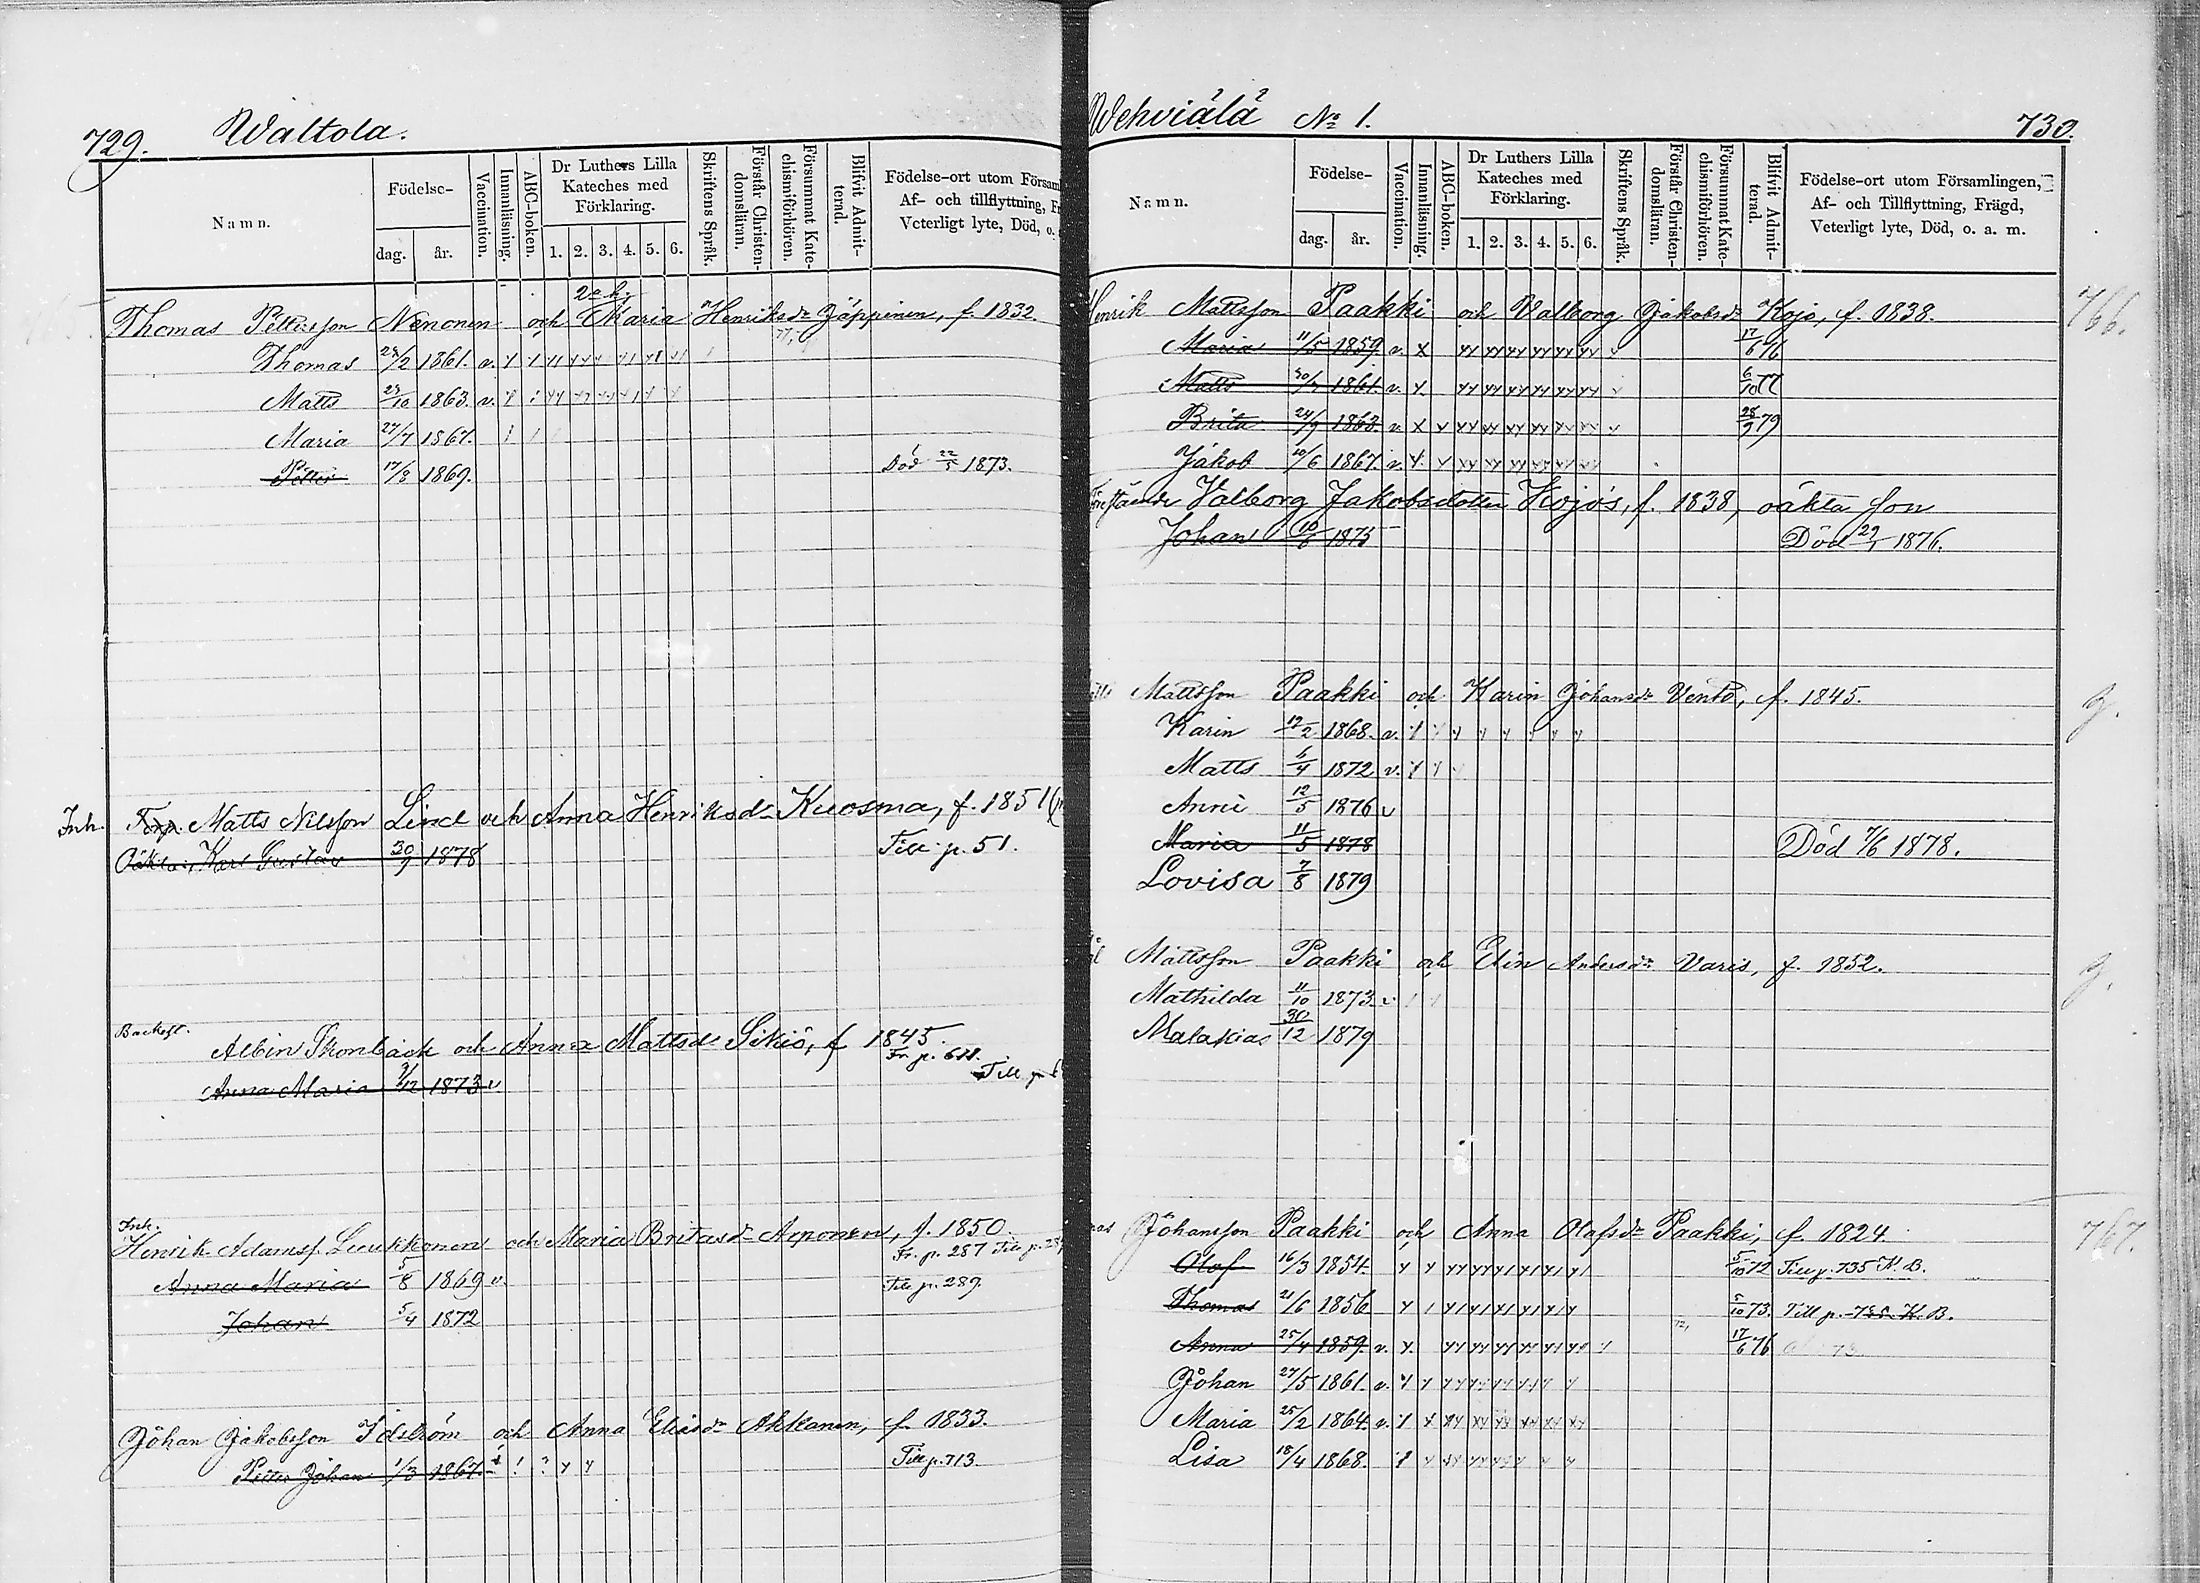 729. Waltola.
Namn. Födelse- dag. år. Vaccination. Innanläsning. ABC-boken. Dr Luthers Lilla Kateches med Förklaring. 1. 2. 3. 4. 5. 6. Skriftens Språk. Förstår Christendomsläran. Försummat Katechismiförhören. Blifvit Admitterad. Födelse-ort utom Försam Af- och tillflyttning, Fr Veterligt lyte, Död, o.
Thomas Pettersson Nenonen och Maria Henriksdr Jäppinen, f. 1832.
Thomas 24/2 1861. v.
Matts 23/10 1863. v.
Maria 27/7 1867.
Petter 17/8 1869. Död 22/5 1873.
Inh. Torp. Matts Nilsson Lind och Anna Henriksdr Kuosma, f. 1851
Oäkta: Karl Gustav 30/9 1878 Till p. 51.
Backst.
Albin Stonback och Anna Mattsdr Sikiö, f 1845.
Fr. p. 611.
Anna Maria 9/12 1873 v Till p
Inh.
Henrik Adamss. Leukkonen och Maria Britasdr Arponen, f. 1850.
Fr. p. 287
Anna Maria 5/8 1869 v. Till p. 289.
Johan 5/4 1872
Johan Jakobsson Idström och Anna Eliasdr Akkanen, f. 1833.
Petter Johan 1/3 1867. Till p. 713.
Wehviälä No 1. 730.
Namn. Födelse- dag. år. Vaccination. Innanläsning. ABC-boken. Dr Luthers Lilla Kateches med Förklaring. 1. 2. 3. 4. 5. 6. Skriftens Språk. Förstår Christendomsläran. Försummat Katechismiförhören. Blifvit Admitterad. Födelse-ort utom Församlingen, Af- och Tillflyttning, Frägd, Veterligt lyte, Död, o. a. m.
Henrik Mattsson Paakki och Valborg Jakobsdr Kojo, f. 1838. 766.
Maria 11/5 1859. v. 17/6 76
Matts 30/7 1861. v. 6/10 77
Brita 24/9 1863. v. 28/9 79
Jakob 10/6 1867. v.
Förestående Valborg Jakobsdotter Kojo's, f. 1838, oäkta son
Johan 10/6 1875 Död 29/1 1876.
Mattsson Paakki och Karin Johansdr Vento, f. 1845.
Karin 12/2 1868. v.
Matts 6/4 1872 v.
Anni 12/5 1876 v
Maria 11/5 1878 Död 7/6 1878.
Lovisa 7/8 1879
Mattsson Paakki och Elin Andersdr Varis, f. 1852.
Mathilda 11/10 1873 v
Malakias 30/12 1879
Johansson Paakki och Anna Olafsdr Paakki, f. 1824. 767.
Olof 16/3 1854. 5/10 72 Till p. 735 K. B.
Thomas 21/6 1856 5/10 73. Till p. 735 K. B.
Anna 25/4 1859. v. 17/6 76
Johan 27/5 1861. v.
Maria 25/2 1864. v.
Lisa 18/4 1868.